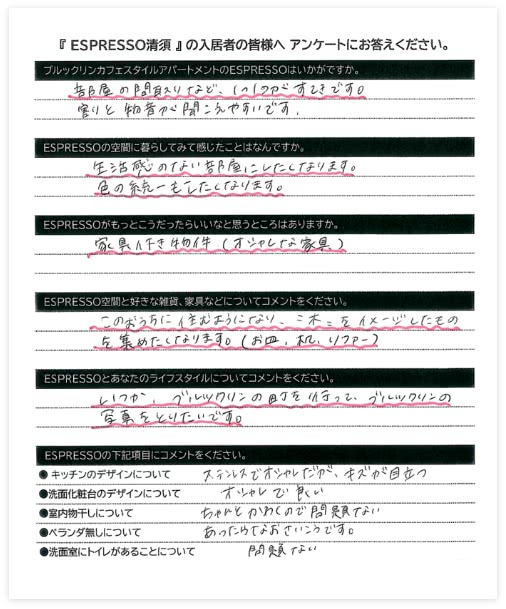 『 ESPRESSO清須 』の入居者の皆様へ アンケートにお答えください。
ブルックリンカフェスタイルアパートメントのESPRESSOはいかがですか。
部屋の間取りなど、1つ1つがすてきです。
割りと物音が聞こえやすいです.
ESPRESSOの空間に暮らしてみて感じたことはなんですか。
生活感のない部屋にしたくなります。
色の統一もしたくなります。
ESPRESSOがもっとこうだったらいいなと思うところはありますか。
家具付き物件(オシャレな家具)
ESPRESSO空間と好きな雑貨、家具などについてコメントをください。
このおうちに住むようになり、ニホンをイメージしたもの
を集めたくなります。(お皿、机、ソファー)
ESPRESSOとあなたのライフスタイルについてコメントをください。
いつか、ブルックリンの町を行って、ブルックリンの
写真をとりたいです。
ESPRESSOの下記項目にコメントをください。
●キッチンのデザインについて ステンレスでオシャレだが、キズが目立つ
●洗面化粧台のデザインについて オシャレで良い
●室内物干しについて ちゃんとかわくので問題ない
●ベランダ無しについて あったらなおさいこうです。
●洗面室にトイレがあることについて 問題ない